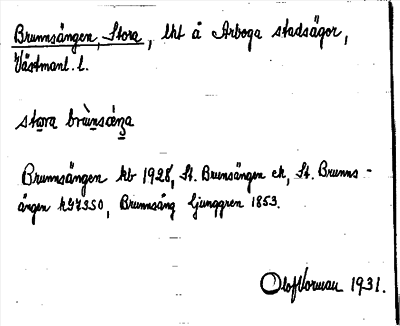 Brunnsängen, Stora, lht å Arboga stadsägor,
Västmanl. l.
stora brùnsæŋa
Brunnsängen kb 1928, St. Brunsängen ek, St. Brunns-
ängen Brunnsäng Ljunggren 1853.
Olof Vorman 1931.